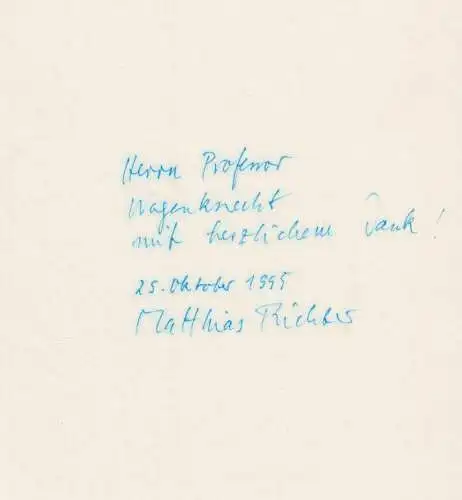 Herrn Professor
Wagenknecht
mit herzlichem Dank!
25. Oktober 1995
Matthias Richter